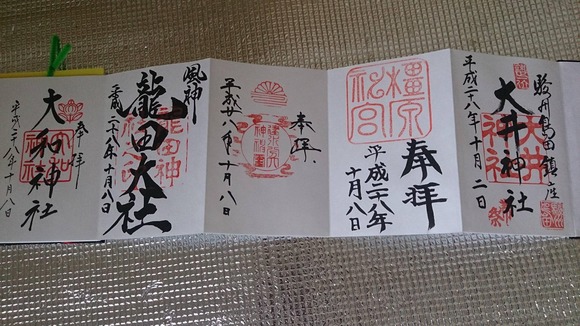 駿州島田鎮座
大井神社
平成二十八年十月二日
橿原神宮
奉拝
平成二八年
十月八日
奉拝
平成廿八年十月八日
風神
龍田大社
平成二十八年十月八日
奉拝
大和神社
平成二八年十月八日